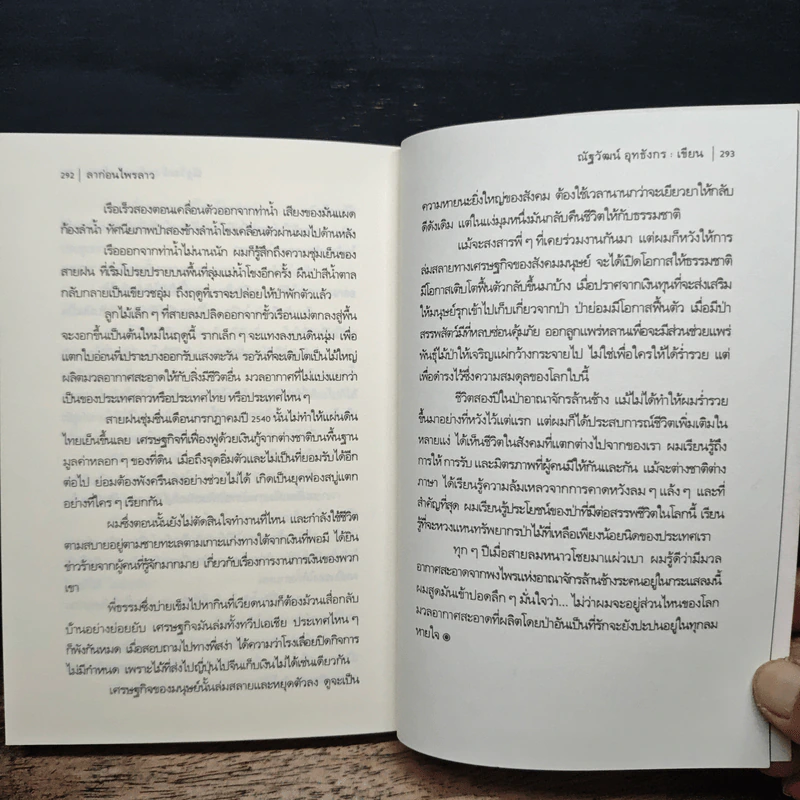 292 | ลาก่อนไพรลาว
เรือเร็วสองตอนเคลื่อนตัวออกจากท่าน้ำ เสียงของมันแผด
ก้องลำน้ำ ทัศนียภาพป่าสองข้างลำน้ำโขงเคลื่อนตัวผ่านผมไปด้านหลัง
เรือออกจากท่าน้ำไม่นานนัก ผมก็รู้สึกถึงความชุ่มเย็นของ
สายฝน ที่เริ่มโปรยปรายบนพื้นที่ลุ่มแม่น้ำโขงอีกครั้ง ผืนป่าสีน้ำตาล
กลับกลายเป็นเขียวชอุ่ม ถึงฤดูที่เราจะปล่อยให้ป่าพักตัวแล้ว
ลูกไม้เล็กๆ ที่สายลมปลิดออกจากขั้วเรือนแม่ตกลงสู่พื้น
จะงอกขึ้นเป็นต้นใหม่ในฤดูนี้ รากเล็กๆ จะแทงลงบนดินนุ่ม เพื่อ
แตกใบอ่อนที่เปราะบางออกรับแสงตะวัน รอวันที่จะเติบโตเป็นไม้ใหญ่
ผลิตมวลอากาศสะอาดให้กับสิ่งมีชีวิตอื่น มวลอากาศที่ไม่แบ่งแยกว่า
เป็นของประเทศลาวหรือประเทศไทย หรือประเทศไหนๆ
สายฝนชุ่มชื่นเดือนกรกฎาคมปี 2540 นั้นไม่ทำให้แผ่นดิน
ไทยเย็นขึ้นเลย เศรษฐกิจที่เฟื่องฟูด้วยเงินกู้จากต่างชาติบนพื้นฐาน
มูลค่าหลอกๆ ของที่ดิน เมื่อถึงจุดอิ่มตัวและไม่เป็นที่ยอมรับได้อีก
ต่อไป ย่อมต้องพังครืนลงอย่างช่วยไม่ได้ เกิดเป็นยุคฟองสบู่แตก
อย่างที่ใครๆ เรียกกัน
ผมซึ่งตอนนั้นยังไม่ตัดสินใจทำงานที่ไหน และกำลังใช้ชีวิต
ตามสบายอยู่ตามชายทะเลตามเกาะแก่งทางใต้จากเงินที่พอมี ได้ยิน
ข่าวร้ายจากผู้คนที่รู้จักมากมาย เกี่ยวกับเรื่องการงานการเงินของพวก
เขา
พี่ธรรมซึ่งบ่ายเข็มไปหากินที่เวียดนามก็ต้องม้วนเสื่อกลับ
บ้านอย่างย่อยยับ เศรษฐกิจมันล่มทั้งทวีปเอเชีย ประเทศไหนๆ
ก็พังกันหมด เมื่อสอบถามไปทางพี่สง่า ได้ความว่าโรงเลื่อยปิดกิจการ
ไม่มีกำหนด เพราะไม้ที่ส่งไปญี่ปุ่นไปจีนเก็บเงินไม่ได้เช่นเดียวกัน
เศรษฐกิจของมนุษย์นั้นล่มสลายและหยุดตัวลง ดูจะเป็น
ณัฐวัฒน์ อุทธังกร : เขียน | 293
ความหายนะยิ่งใหญ่ของสังคม ต้องใช้เวลานานกว่าจะเยียวยาให้กลับ
ดีดังเดิม แต่ในแง่มุมหนึ่งมันกลับคืนชีวิตให้กับธรรมชาติ
แม้จะสงสารพี่ๆ ที่เคยร่วมงานกันมา แต่ผมก็หวังให้การ
ล่มสลายทางเศรษฐกิจของสังคมมนุษย์ จะได้เปิดโอกาสให้ธรรมชาติ
มีโอกาสเติบโตฟื้นตัวกลับขึ้นมาบ้าง เมื่อปราศจากเงินทุนที่จะส่งเสริม
ให้มนุษย์รุกเข้าไปเก็บเกี่ยวจากป่า ป่าย่อมมีโอกาสฟื้นตัว เมื่อมีป่า
สรรพสัตว์มีที่หลบซ่อนคุ้มภัย ออกลูกแพร่หลานเพื่อจะมีส่วนช่วยแพร่
พันธุ์ไม้ป่าให้เจริญแผ่กว้างกระจายไป ไม่ใช่เพื่อใครได้ร่ำรวย แต่
เพื่อดำรงไว้ซึ่งความสมดุลของโลกใบนี้
ชีวิตสองปีในป่าอาณาจักรล้านช้าง แม้ไม่ได้ทำให้ผมร่ำรวย
ขึ้นมาอย่างที่หวังไว้แต่แรก แต่ผมก็ได้ประสบการณ์ชีวิตเพิ่มเติมใน
หลายแง่ ได้เห็นชีวิตในสังคมที่แตกต่างไปจากของเรา ผมเรียนรู้ถึง
การให้ การรับ และมิตรภาพที่ผู้คนมีให้กันและกัน แม้จะต่างชาติต่าง
ภาษา ได้เรียนรู้ความล้มเหลวจากการคาดหวังลมๆ แล้งๆ และที่
สำคัญที่สุด ผมเรียนรู้ประโยชน์ของป่าที่มีต่อสรรพชีวิตในโลกนี้ เรียน
รู้ที่จะหวงแหนทรัพยากรป่าไม้ที่เหลือเพียงน้อยนิดของประเทศเรา
ทุกๆ ปีเมื่อสายลมหนาวโชยมาแผ่วเบา ผมรู้ดีว่ามีมวล
อากาศสะอาดจากพงไพรแห่งอาณาจักรล้านช้างระคนอยู่ในกระแสลมนี้
ผมสูดมันเข้าปอดลึกๆ มั่นใจว่า... ไม่ว่าผมจะอยู่ส่วนไหนของโลก
มวลอากาศสะอาดที่ผลิตโดยป่าอันเป็นที่รักจะยังปะปนอยู่ในทุกลม
หายใจ